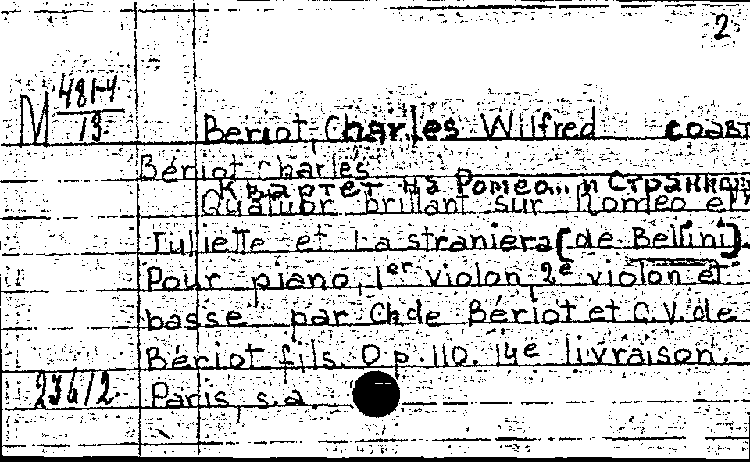 2
М 481-4
13.
Beriot, Charles Wilfred соавт
Bériot Charles
Квартет на Ромео... и Странниц
Quatuor brillant sur Romeo et
Juliette et La straniera [de Bellini].
Pour piano, 1er violon, 2e violon et
basse par Ch de Bériot et C.V. de
Bériot fils. Op. 110. 14e livraison.
236/2. Paris, s.a.